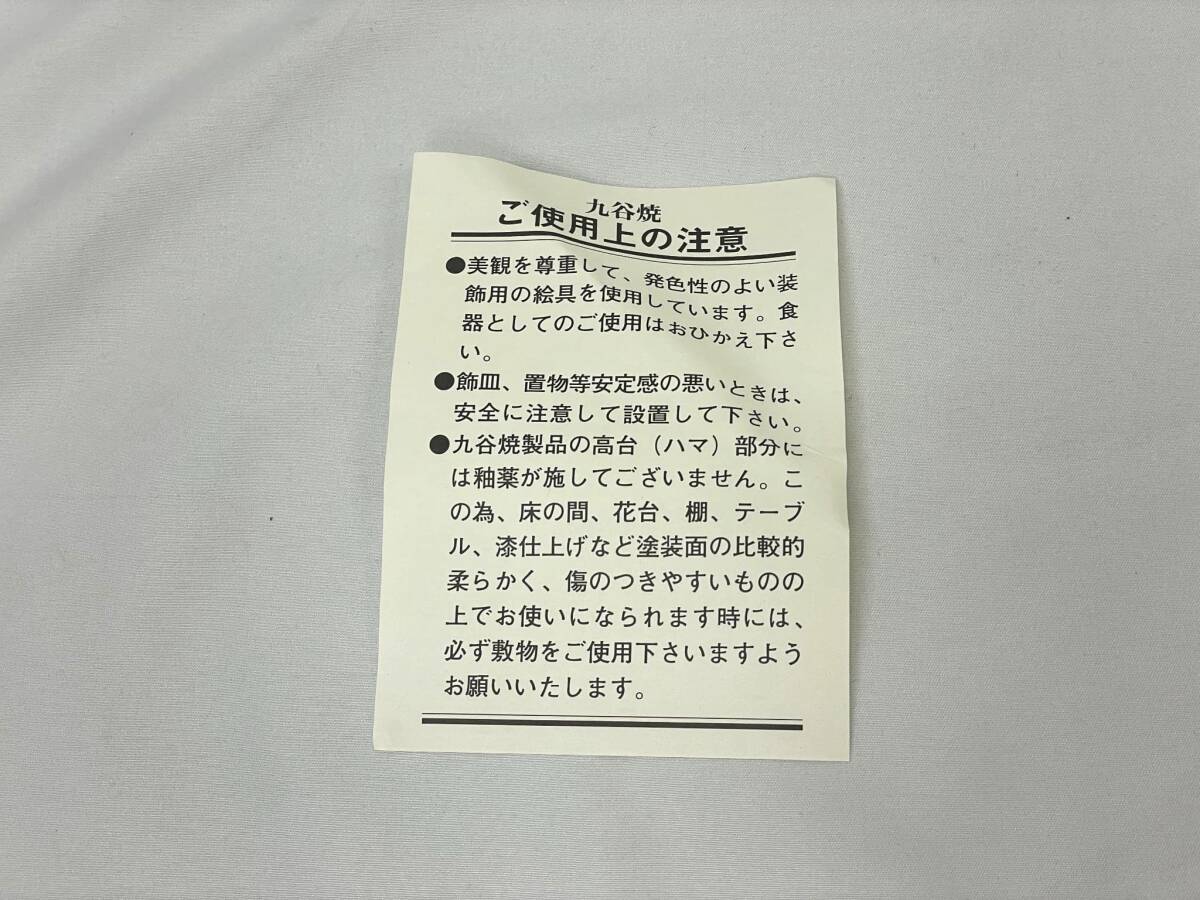 九谷焼
ご使用上の注意
●美観を尊重して、発色性のよい装
飾用の絵具を使用しています。食
器としてのご使用はおひかえ下さ
い。
●飾皿、置物等安定感の悪いときは、
安全に注意して設置して下さい。
●九谷焼製品の高台（ハマ）部分に
は釉薬が施してございません。こ
の為、床の間、花台、棚、テーブ
ル、漆仕上げなど塗装面の比較的
柔らかく、傷のつきやすいものの
上でお使いになられます時には、
必ず敷物をご使用下さいますよう
お願いいたします。